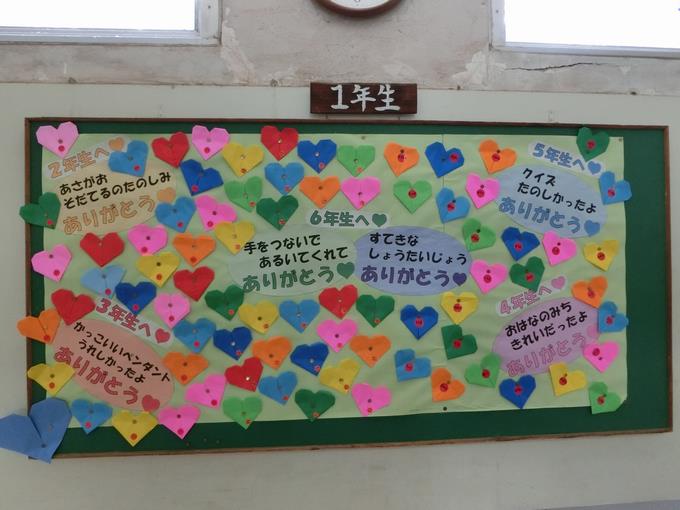 1年生
2年生へ
あさがお
そだてるのたのしみ
ありがとう
6年生へ
手をつないで
あるいてくれて
ありがとう
すてきな
しょうたいじょう
ありがとう
5年生へ
クイズ
たのしかったよ
ありがとう
3年生へ
かっこいいペンダント
うれしかったよ
ありがとう
4年生へ
おはなのみち
きれいだったよ
ありがとう